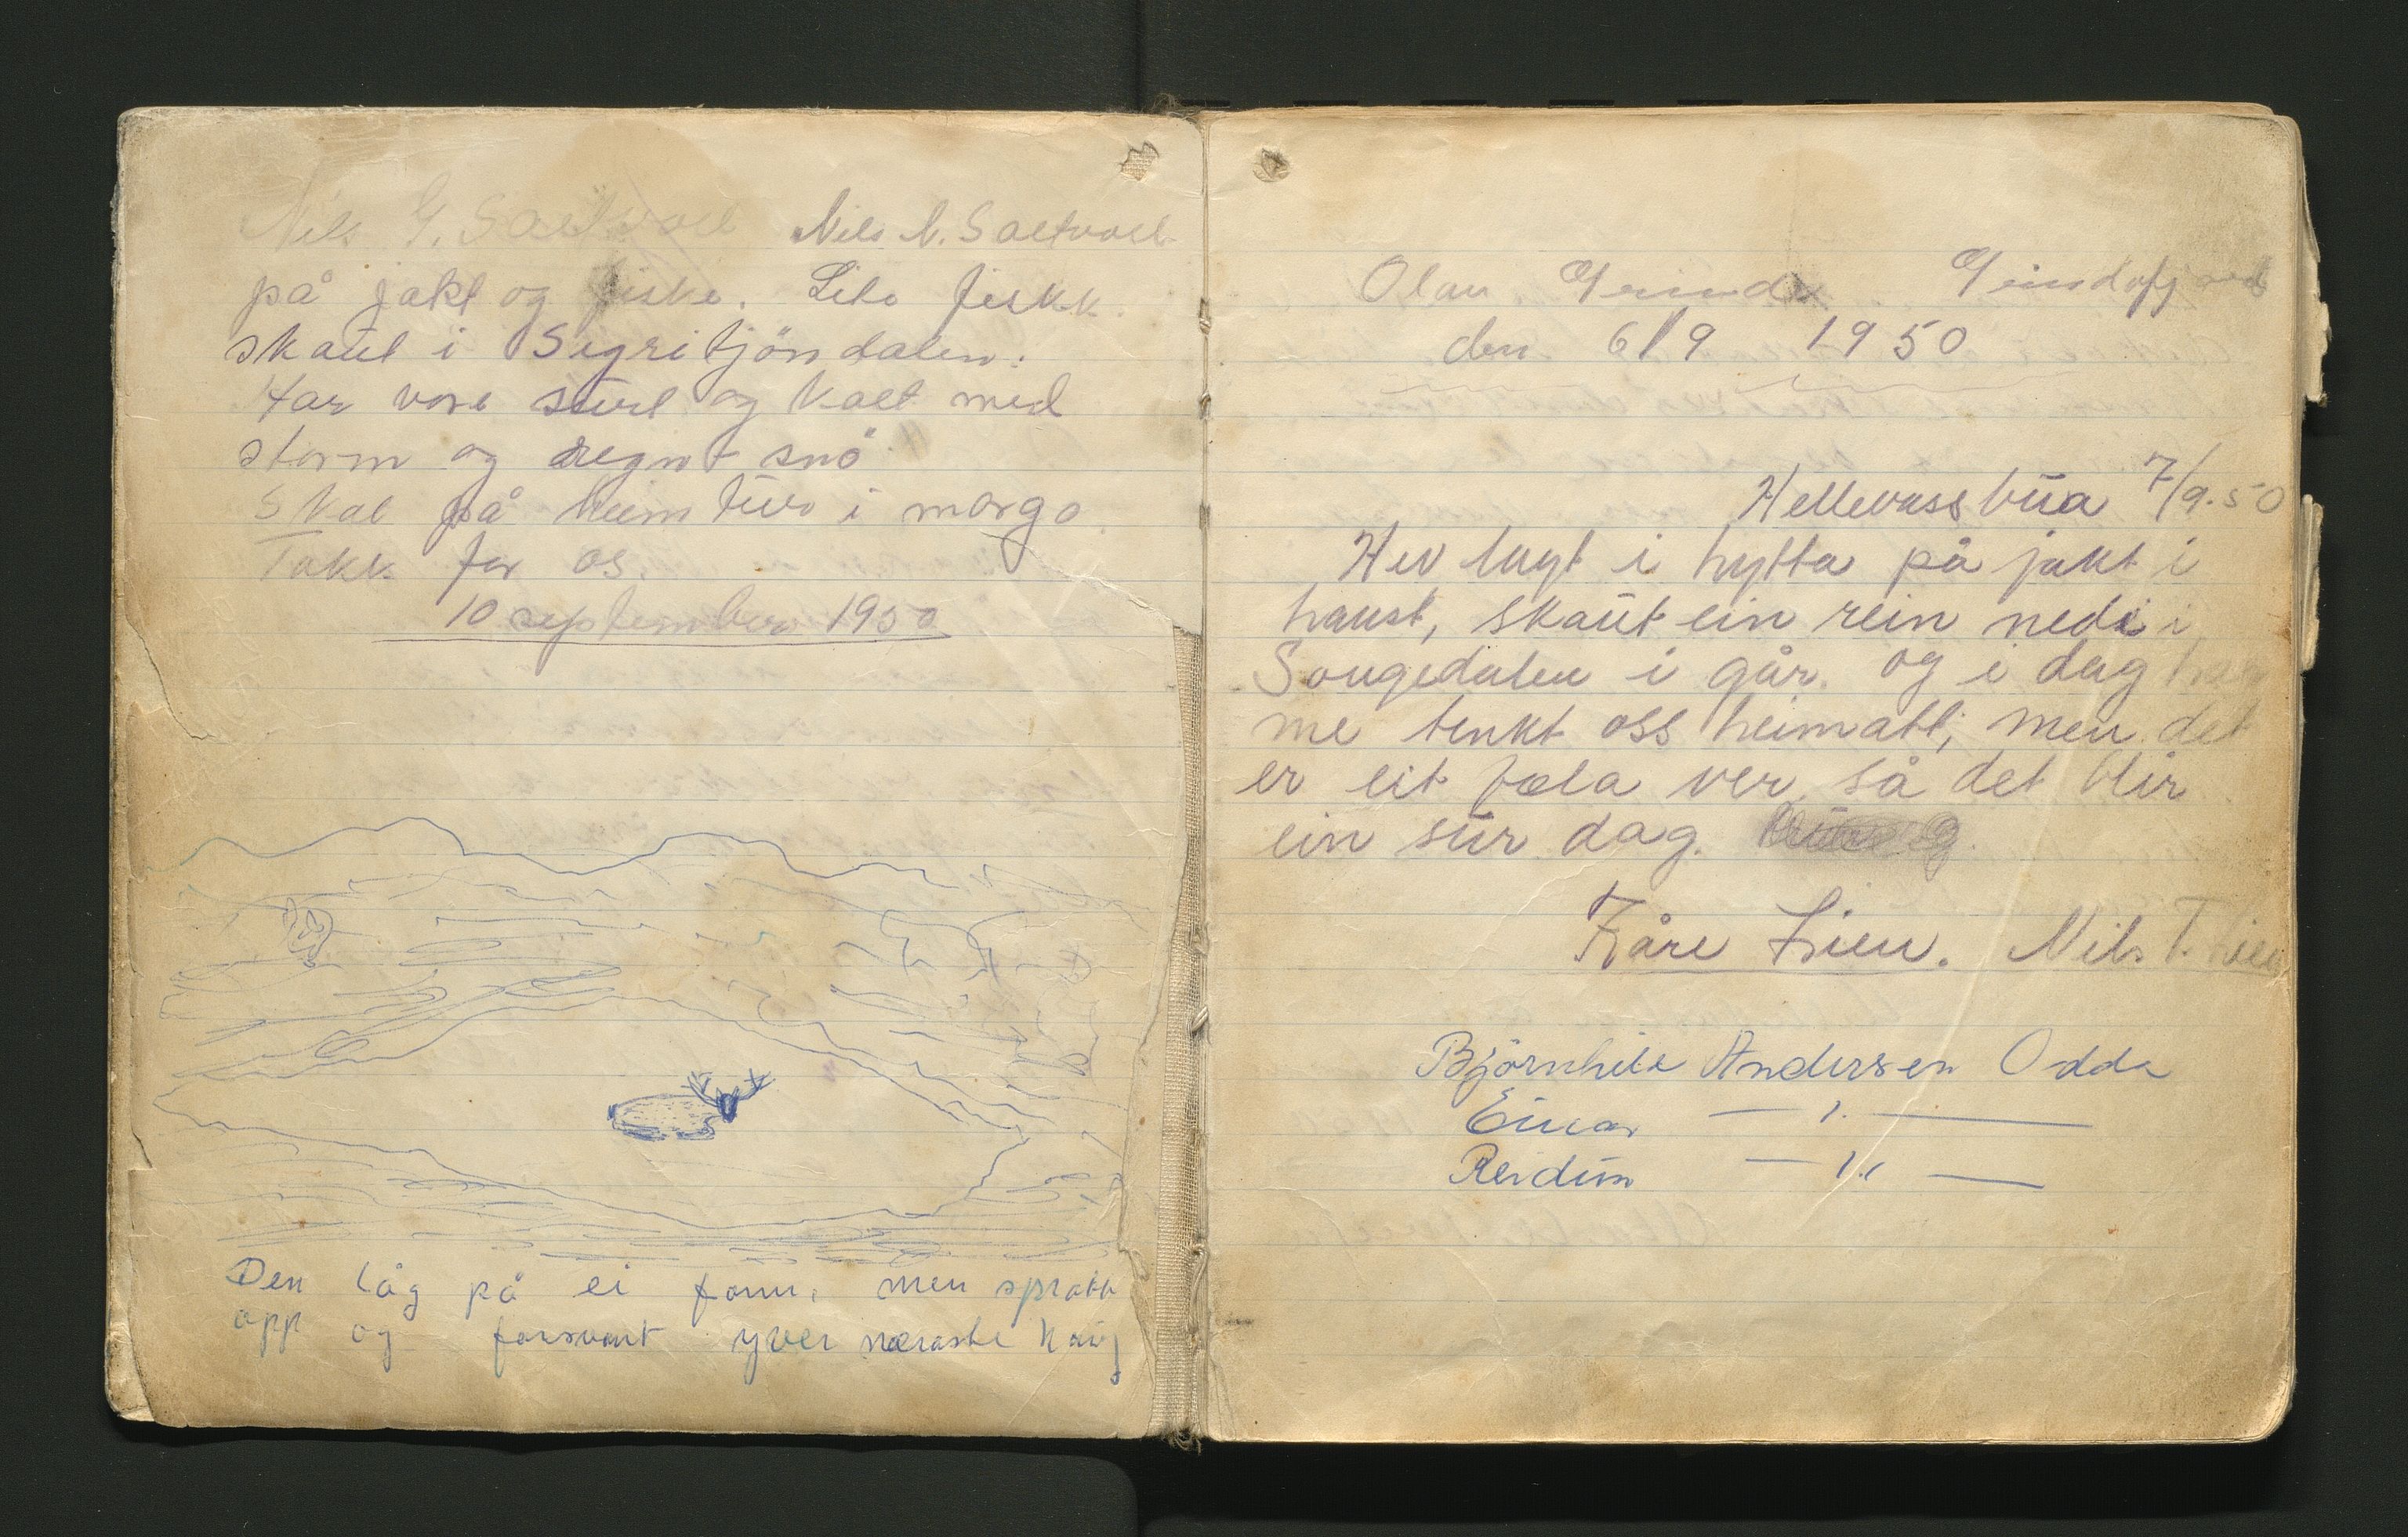 Nils G. Saltvoll Nils N. Saltvoll
på jakt og fiske. Lite fiskk.
skaut i Sigritjöndalen.
Har vore surt og kalt med
storm og regn + snö
Skal på heimtur i morgo
Takk for os.
10 september 1950
Den låg på ei fonn, men sprakk
opp og forsvant yver næraste haug
Olav Grinde
den 6/9 1950
Hellevassbua 7/9.50
Hev lugt i hytta på jakt i
haust, skaut ein rein nedi i
Songedalen i går. og i dag har
me tenkt oss heimatt, men det
er eit fæla ver, så det blir
ein sur dag.
Kåre Lien. Nils T. Lien
Björnhild Andersen Odda
Einar — " —
Reidun — " —